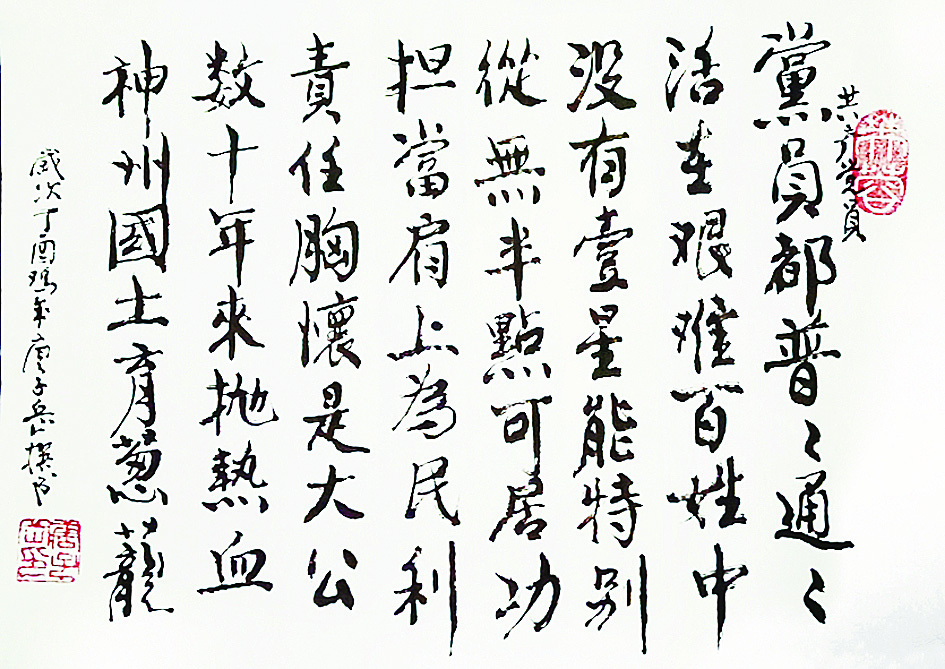 共产党員
黨員都普〻通〻
活在艰难百姓中
没有壹星能特别
從無半點可居功
担當肩上為民利
責任胸懷是大公
数十年來抛熱血
神州國土育葱蘢
歲次丁酉鸡年唐子岳撰